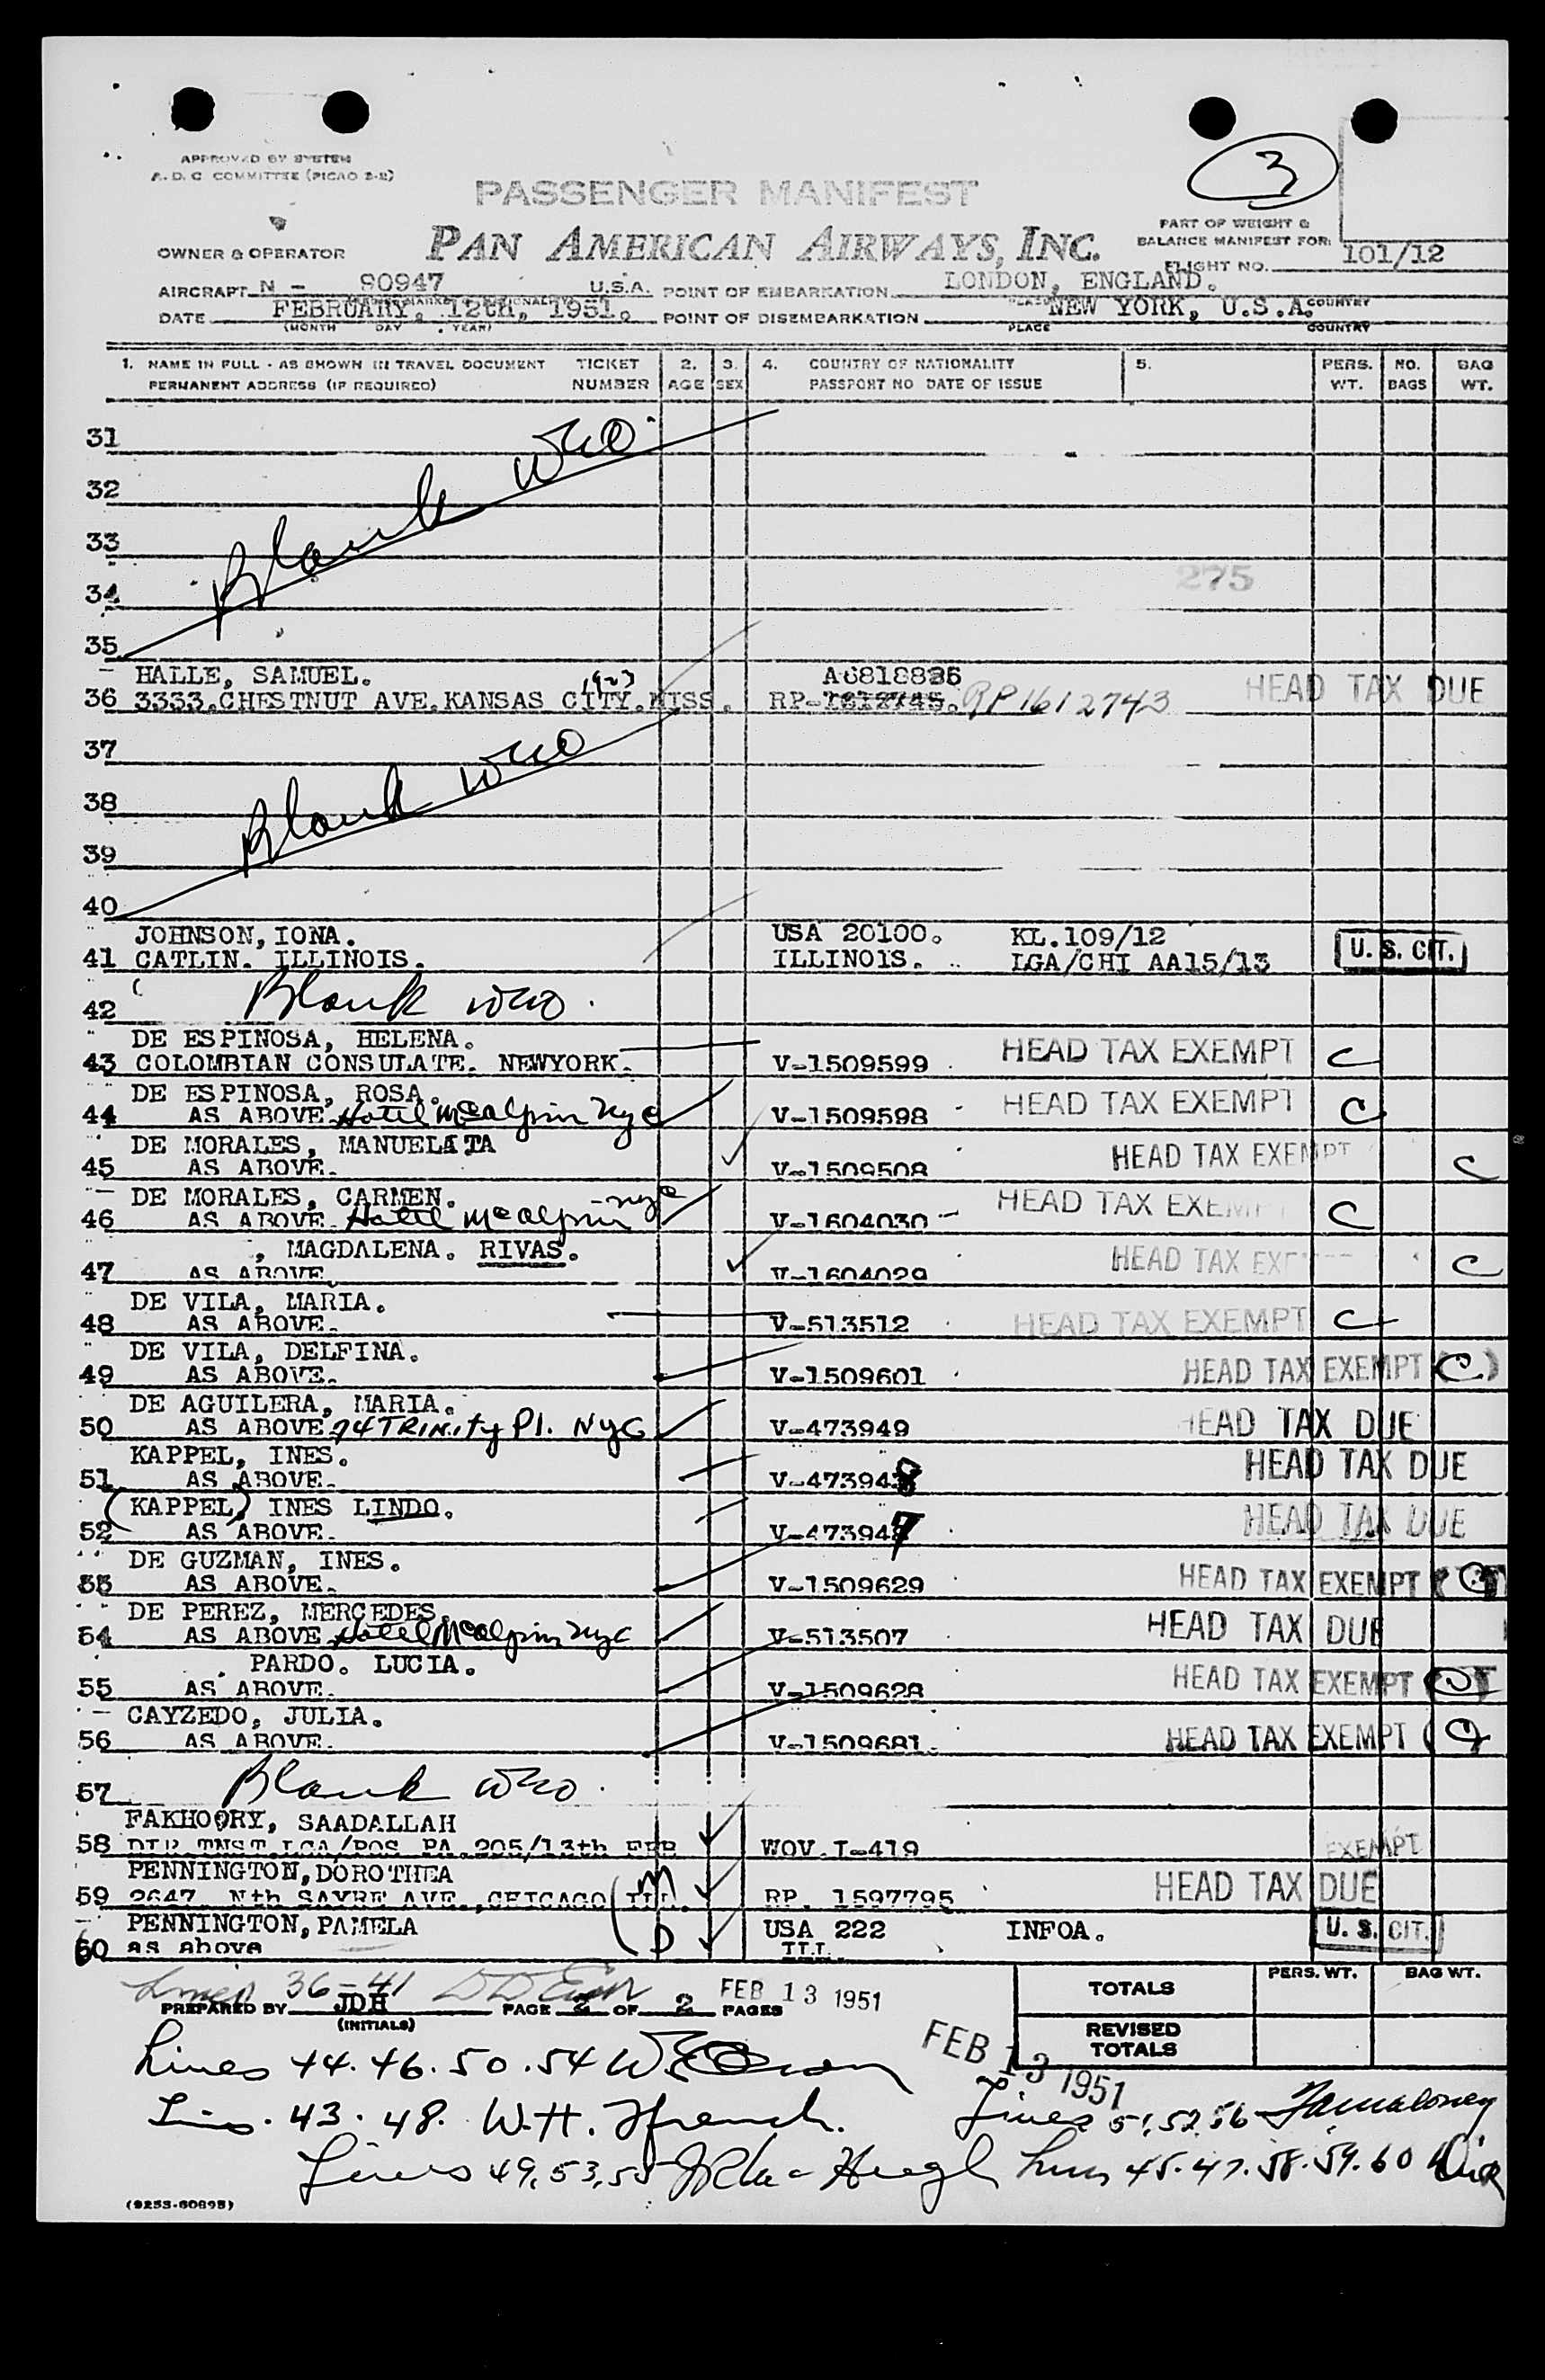 3
APPROVED BY SYSTEM
A.D.C COMMITTEE (PICAO 2-2)
PASSENGER MANIFEST
PART OF WEIGHT &
BALANCE MANIFEST FOR:
OWNER & OPERATOR PAN AMERICAN AIRWAYS, INC.
FLIGHT NO. 101/12
AIRCRAFT N - 90947 U.S.A. POINT OF EMBARKATION LONDON, ENGLAND.
DATE FEBRUARY. 12th, 1951. POINT OF DISEMBARKATION NEW YORK, U.S.A.
(MONTH DAY YEAR) PLACE COUNTRY
1. NAME IN FULL - AS SHOWN IN TRAVEL DOCUMENT TICKET 2. 3. 4. COUNTRY OF NATIONALITY 5. PERS. NO. BAG
PERMANENT ADDRESS (IF REQUIRED) NUMBER AGE SEX PASSPORT NO DATE OF ISSUE WT. BAGS WT.
31
32
33 Blank
34 275
35
HALLE, SAMUEL. A6818836
36 3333.CHESTNUT AVE.KANSAS CITY.MISS. RP- RP1612743 HEAD TAX DUE
37
38 Blank
39
40
JOHNSON, IONA. USA 20100. KL.109/12
41 CATLIN. ILLINOIS. ILLINOIS. LGA/CHI AA15/13 U. S. CIT.
42 Blank
DE ESPINOSA, HELENA.
43 COLOMBIAN CONSULATE. NEWYORK. V-1509599 HEAD TAX EXEMPT C
DE ESPINOSA, ROSA.
44 AS ABOVE Hotel McAlpin NyC V-1509598 HEAD TAX EXEMPT C
DE MORALES, MANUELITA
45 AS ABOVE. V-1509508 HEAD TAX EXEMPT C
DE MORALES, CARMEN.
46 AS ABOVE Hotel McAlpin nyc V-1604030 HEAD TAX EXEMPT C
, MAGDALENA. RIVAS.
47 AS ABOVE V-1604029 HEAD TAX C
DE VILA, MARIA.
48 AS ABOVE. V-513512 HEAD TAX EXEMPT C
DE VILA, DELFINA.
49 AS ABOVE. V-1509601 HEAD TAX EXEMPT (C)
DE AGUILERA, MARIA.
50 AS ABOVE 74 TRINITY Pl. NyC V-473949 HEAD TAX DUE
KAPPEL, INES.
51 AS ABOVE. V-473948 HEAD TAX DUE
(KAPPEL) INES LINDO.
52 AS ABOVE. V-473947 HEAD TAX DUE
DE GUZMAN, INES.
53 AS ABOVE. V-1509629 HEAD TAX EXEMPT
DE PEREZ, MERCEDES.
54 AS ABOVE Hotel McAlpin nyc V-513507 HEAD TAX DUE
PARDO. LUCIA.
55 AS ABOVE. V-1509628 HEAD TAX EXEMPT
CAYZEDO, JULIA.
56 AS ABOVE. V-1509681. HEAD TAX EXEMPT
57 Blank
FAKHOORY, SAADALLAH
58 DIR TNST LGA/BOS PA.205/13th FEB WOV.I-419 EXEMPT
PENNINGTON, DOROTHEA M
59 2647 Nth SAYRE AVE.,CHICAGO ILL. RP. 1597795 HEAD TAX DUE
PENNINGTON, PAMELA D USA 222 INFOA. U. S. CIT.
60 as above ILL.
Lines 36-41 FEB 13 1951
PREPARED BY JDH PAGE 2 OF 2 PAGES
(INITIALS)
TOTALS PERS. WT. BAG WT.
REVISED
TOTALS
FEB 13 1951
Lines 44.46.50.54
Lines 43.48. W.H. French. Lines 51,52,56
Lines 49,53,55 Lines 45.47.58.59.60
(9253-60695)